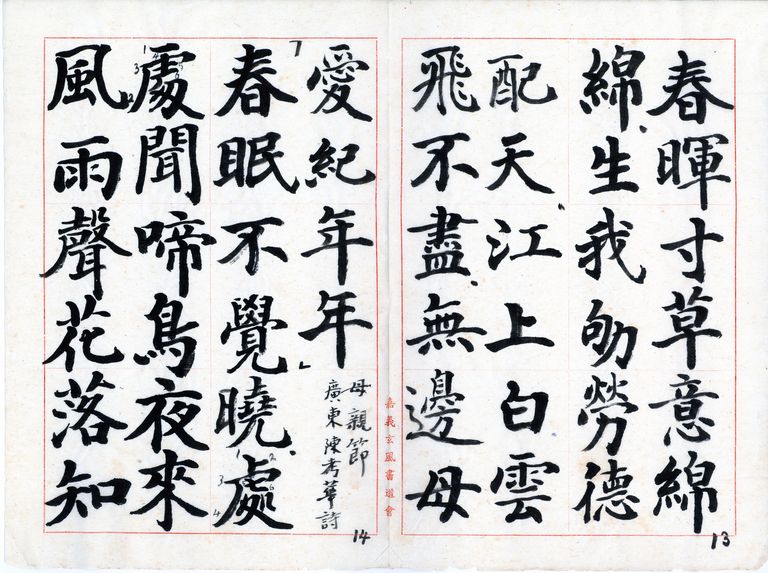 春暉寸草意綿
綿、生我劬勞德
配天、江上白雲
飛不盡、無邊母
13
嘉義玄風書道會
愛紀年年
母親節
廣東陳孝華詩
「春眠不覺曉、處
處聞啼鳥夜來
風雨聲花落知
14